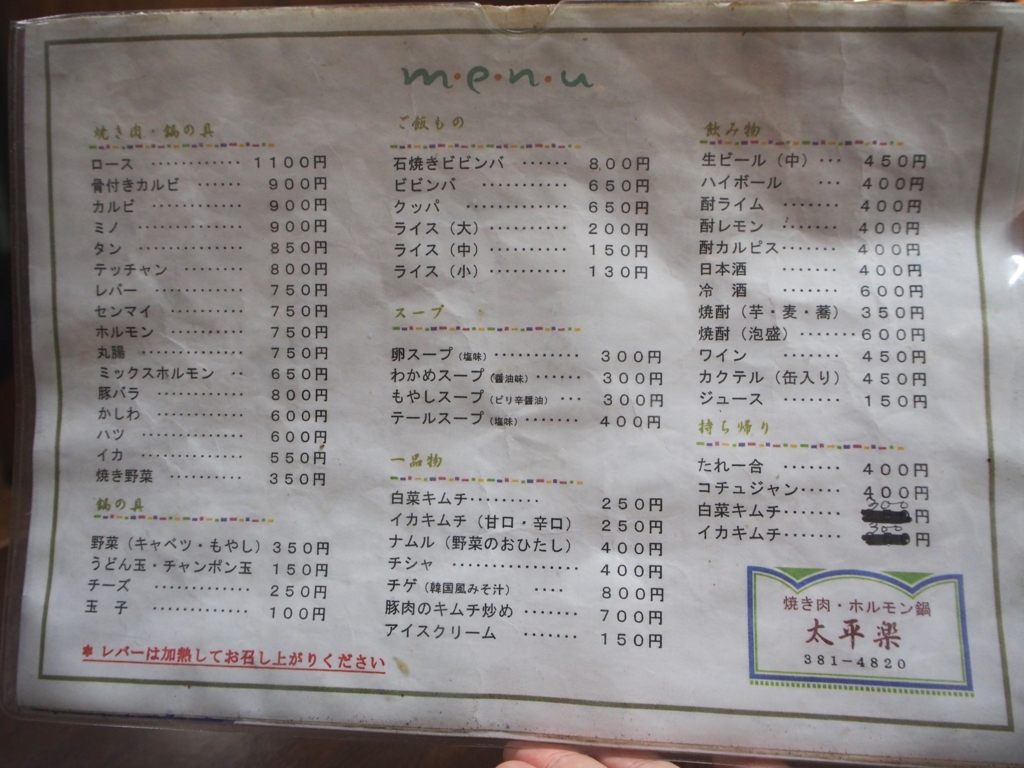 menu
焼き肉・鍋の具
ロース ············ 1100円
骨付きカルビ ······ 900円
カルビ ··········· 900円
ミノ ············ 900円
タン ············ 850円
テッチャン ········ 800円
レバー ··········· 750円
センマイ ·········· 750円
ホルモン ·········· 750円
丸腸 ············ 750円
ミックスホルモン ·· 650円
豚バラ ·········· 800円
かしわ ·········· 600円
ハツ ············ 600円
イカ ············ 550円
焼き野菜 ········· 350円
鍋の具
野菜（キャベツ・もやし）350円
うどん玉・チャンポン玉 150円
チーズ ··········· 250円
玉 子 ··········· 100円
* レバーは加熱してお召し上がりください
ご飯もの
石焼きビビンバ ······ 800円
ビビンバ ··········· 650円
クッパ ············· 650円
ライス（大）·········· 200円
ライス（中）·········· 150円
ライス（小）·········· 130円
スープ
卵スープ（塩味）··········· 300円
わかめスープ（醤油味）······ 300円
もやしスープ（ピリ辛醤油）··· 300円
テールスープ（塩味）········ 400円
一品物
白菜キムチ········· 250円
イカキムチ（甘口・辛口） 250円
ナムル（野菜のおひたし） 400円
チシャ ················ 400円
チゲ（韓国風みそ汁） ···· 800円
豚肉のキムチ炒め ······· 700円
アイスクリーム ······· 150円
飲み物
生ビール（中）··· 450円
ハイボール ··· 400円
酎ライム ······· 400円
酎レモン ······· 400円
酎カルピス······ 400円
日本酒 ······· 400円
冷 酒 ······· 600円
焼酎（芋・麦・蕎）350円
焼酎（泡盛）········600円
ワイン ······· 450円
カクテル（缶入り）450円
ジュース ······· 150円
持ち帰り
たれ一合 ······· 400円
コチュジャン····· 400円
白菜キムチ····· 300円
イカキムチ····· 300円
焼き肉・ホルモン鍋
太平楽
381-4820